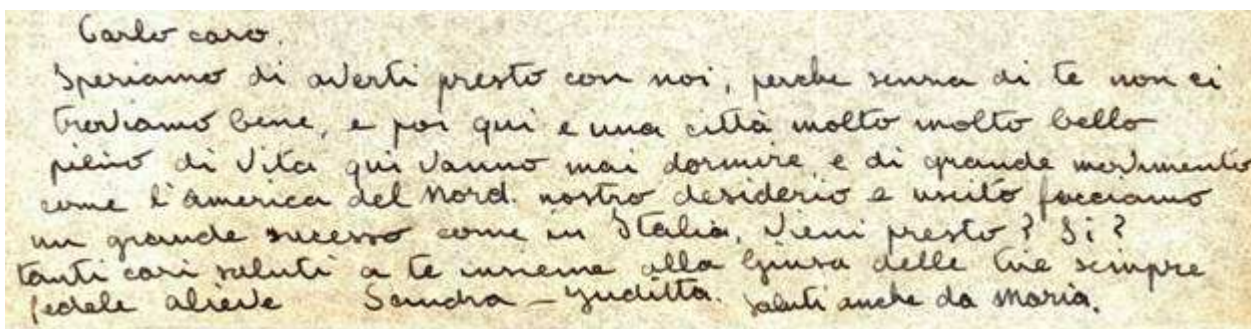 Carlo caro.
Speriamo di averti presto con noi, perche senza di te non ci
troviamo bene, e poi qui e una città molto molto bello
pieno di vita qui vanno mai dormire e di grande movimento
come l'america del Nord. nostro desiderio e uscito facciamo
un grande sucesso come in Italia, vieni presto? Si?
tanti cari saluti a te insieme alla Giusa delle tue sempre
fedele alieve Sandra - Juditta. saluti anche da Maria.